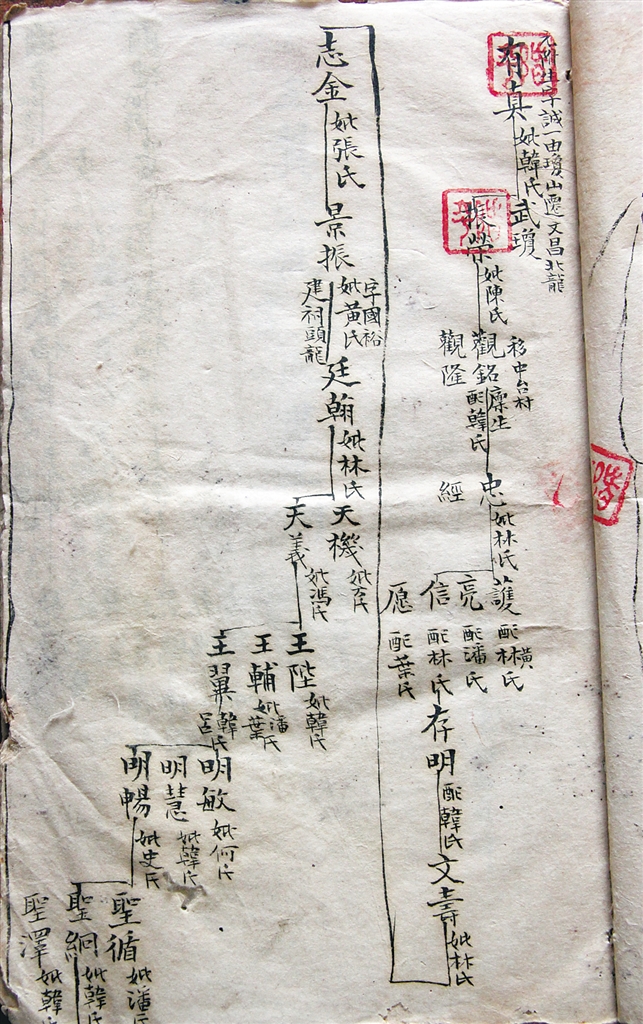 誠一由瓊山遷文昌北龍
有真
妣韓氏
武瓊
振榮
妣陳氏
移中台村
觀銘
廪生
配韓氏
觀隆
忠
妣林氏
經
頀
配林黃氏
亮
配潘氏
信
配林氏
愿
配葉氏
存明
配韓氏
文壽
妣林氏
志金
妣張氏
景振
字國裕
妣黃氏
建祠頭龍
廷翰
妣林氏
天機
天義
妣馮氏
王陛
妣韓氏
王輔
妣潘葉氏
王翼
韓呂氏
明敏
妣何氏
明慧
妣韓氏
明暢
妣史氏
聖循
妣潘氏
聖絅
妣韓氏
聖澤
妣韓